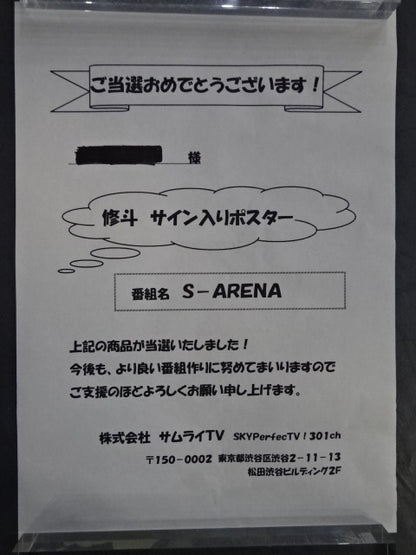 ご当選おめでとうございます！
様
修斗 サイン入りポスター
番組名 S-ARENA
上記の商品が当選いたしました！
今後も、より良い番組作りに努めてまいりますので
ご支援のほどよろしくお願い申し上げます。
株式会社 サムライTV SKYPerfecTV！301ch
〒150-0002 東京都渋谷区渋谷2-11-13
松田渋谷ビルディング2F